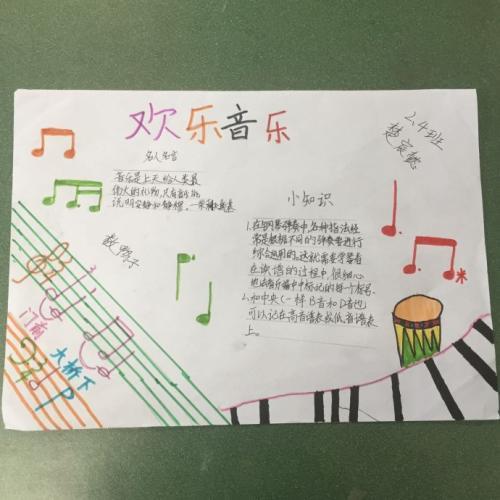 欢乐音乐
2.4班
名人名言
音乐是上天给人类最
伟大的礼物,只有音乐能
说明安静和静穆。
小知识
1.在钢琴弹奏中,各种指法经
常是根据不同的弹奏者进行
综合运用的。这就需要学习者
在读谱的过程中,很细心
每一个指号。
2.和中央C一样B音和D音也
可以记在高音谱表或低音谱表
上。
数鸭子
门前
大桥下